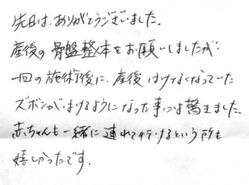 先日は、ありがとうございました。
産後の骨盤整体をお願いしましたが
一回の施術後に、産後はけなくなっていた
ズボンがはけるようになった事には驚きました。
赤ちゃんも一緒に連れて行けるという所も
嬉しかったです。